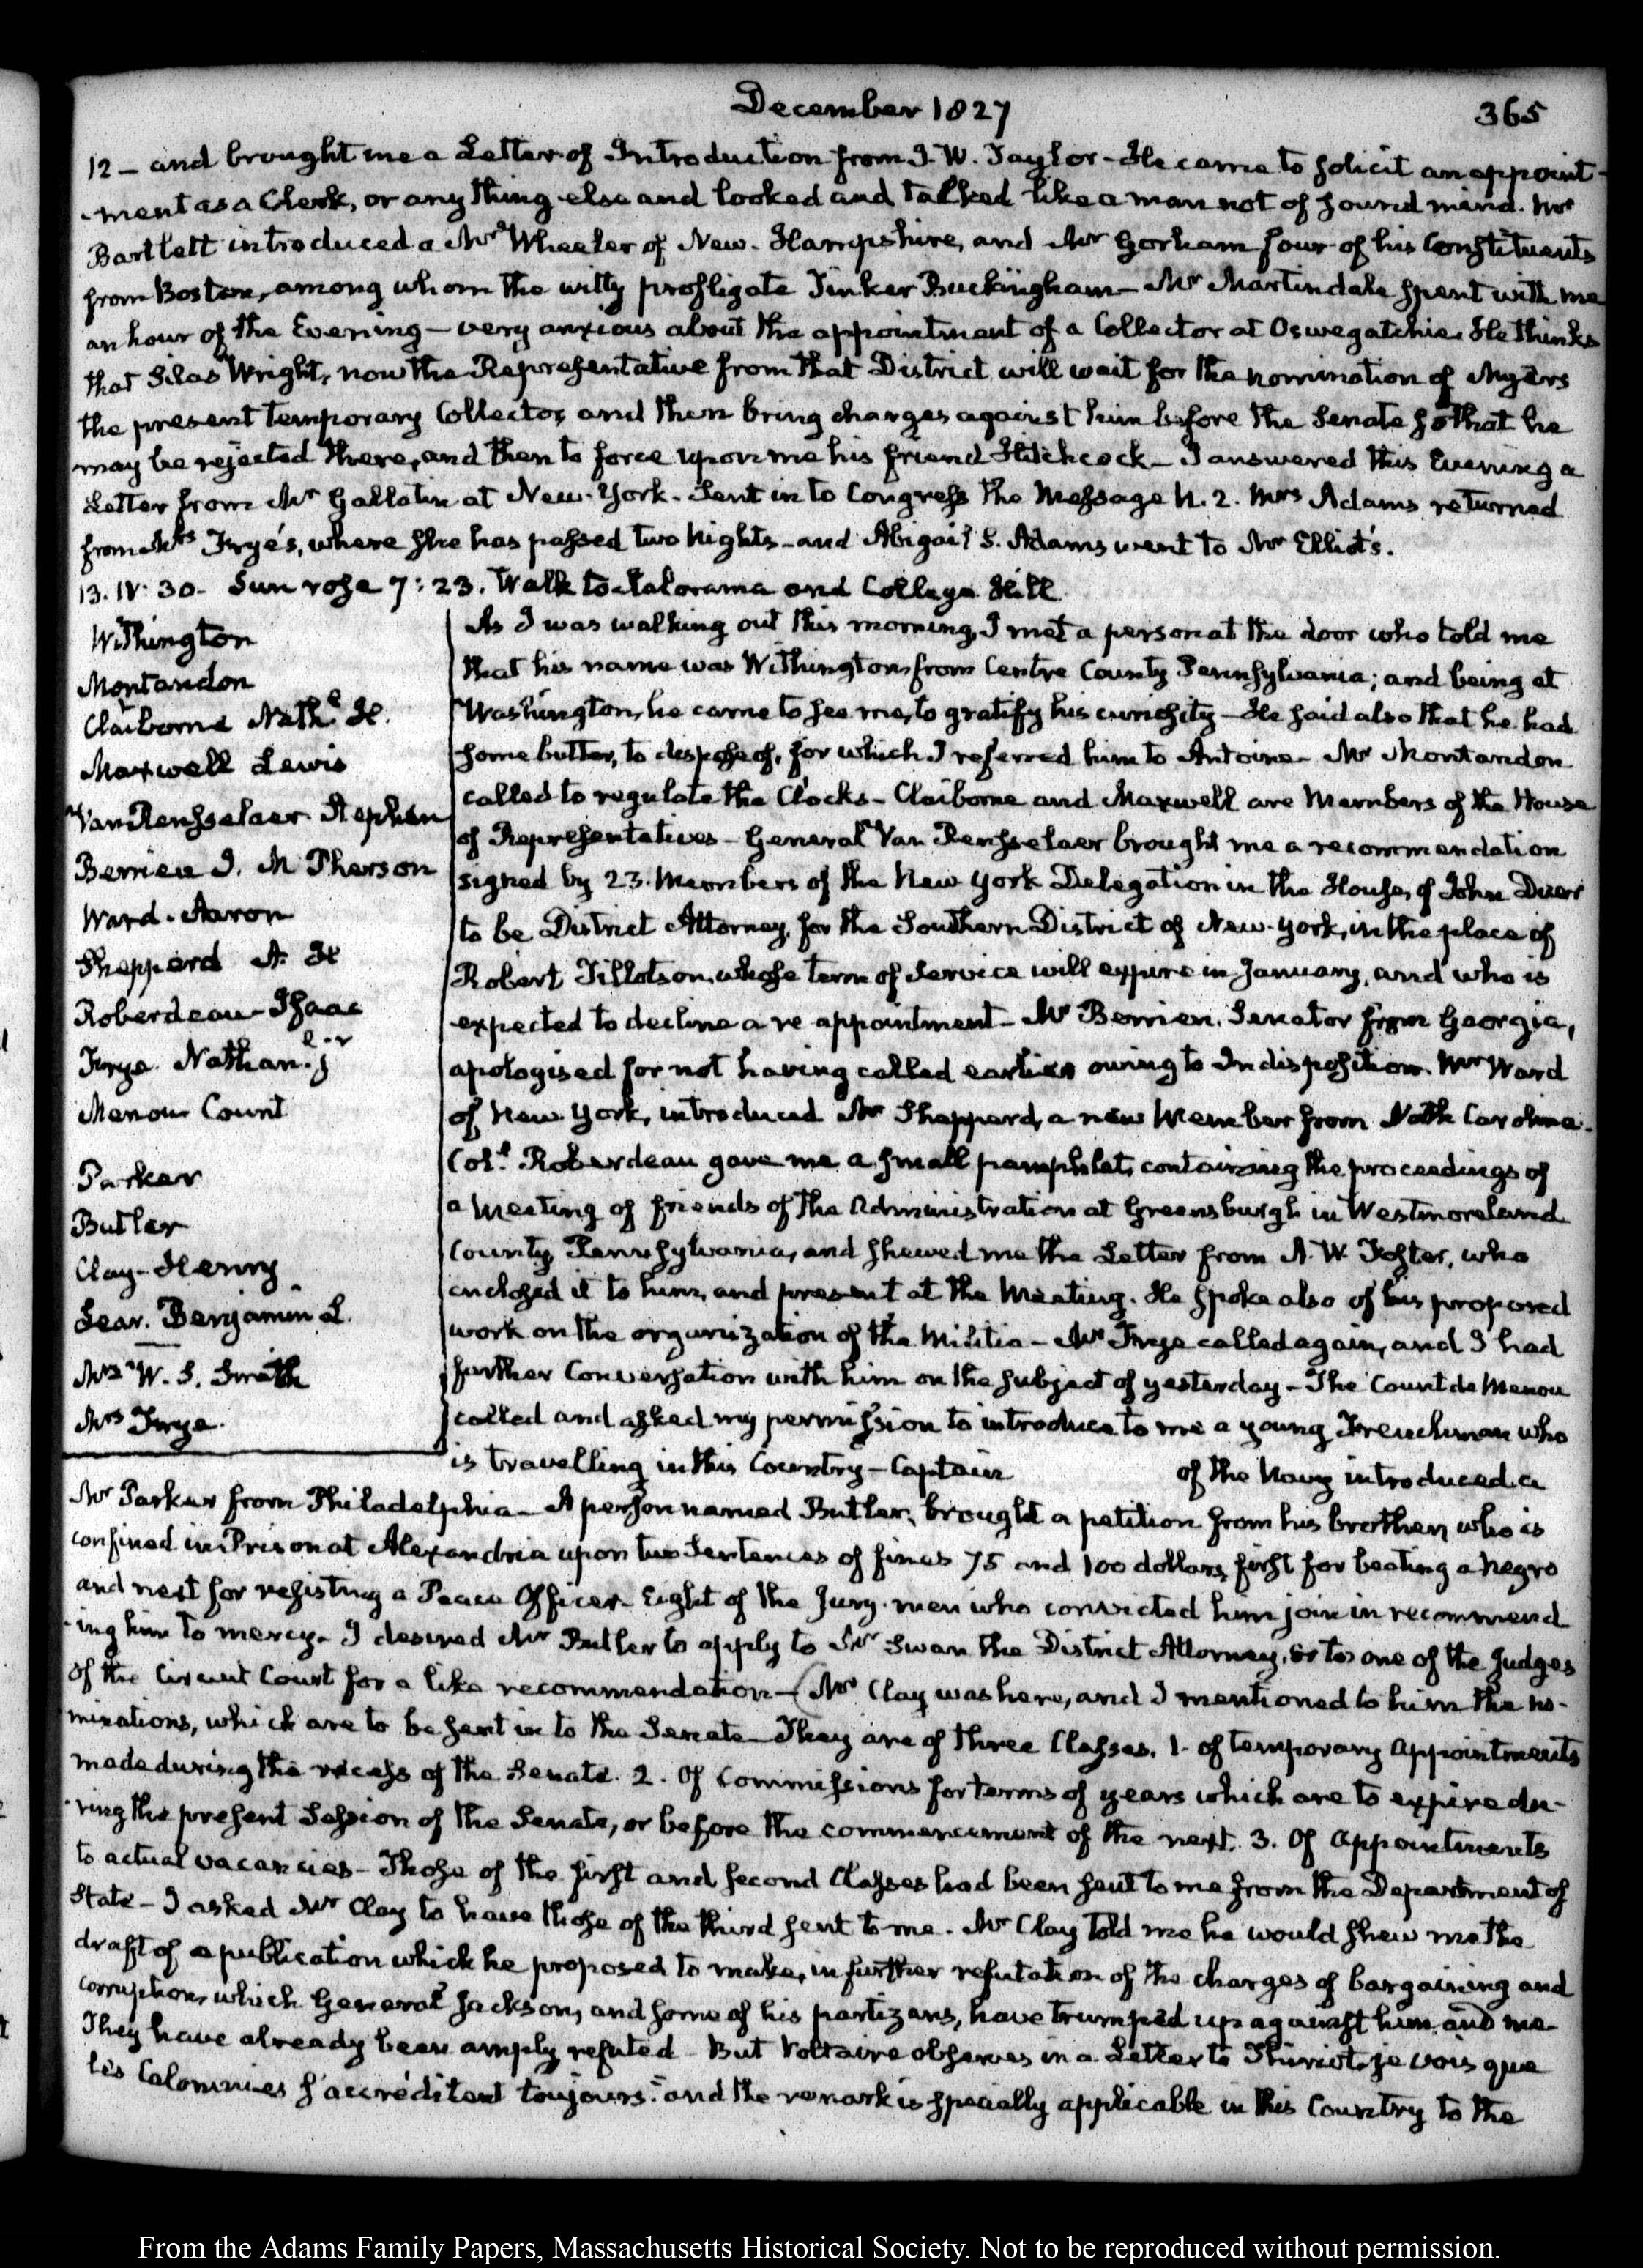 December 1827
365
12 — and brought me a Letter of Introduction from J. W. Taylor — He came to solicit an appoint-
-ment as a Clerk, or any thing else and looked and talked like a man not of sound mind. Mr
Bartlett introduced a Mr Wheeler of New-Hampshire, and Mr Gorham four of his Constituents
from Boston, among whom the witty profligate Tinker Buckingham — Mr Martindale spent with me
an hour of the Evening — very anxious about the appointment of a Collector at Oswegatchie. He thinks
that Silas Wright, now the Representative from that District will wait for the nomination of Myers
the present temporary Collector, and then bring charges against him before the Senate so that he
may be rejected there, and then to force upon me his friend Hitchcock — I answered this Evening a
Letter from Mr Gallatin at New-York. Sent in to Congress the Message N. 2. Mrs Adams returned
from Mrs Frye's, where she has passed two Nights — and Abigail S. Adams went to Mr Elliot's.
13. IV: 30. Sun rose 7: 23. Walk to Kalorama and College Hill
Withington
Montandon
Claiborne Nath.l H.
Maxwell Lewis
Van Rensselaer Stephen
Berrien J. McPherson
Ward. Aaron
Sheppard A. H
Roberdeau Isaac
Frye Nathan.l jr
Menou Count
Parker
Butler
Clay — Henry
Lear. Benjamin L.
Mrs W. S. Smith
Mrs Frye.
As I was walking out this morning, I met a person at the door who told me
that his name was Withington, from Centre County Pennsylvania; and being at
Washington, he came to see me, to gratify his curiosity — He said also that he had
some butter, to dispose of, for which I referred him to Antoine — Mr Montandon
called to regulate the Clocks — Claiborne and Maxwell are Members of the House
of Representatives — General Van Rensselaer brought me a recommendation
signed by 23. Members of the New York Delegation in the House, of John Duer
to be District Attorney, for the Southern District of New-York, in the place of
Robert Tillotson, whose term of Service will expire in January, and who is
expected to decline a re appointment — Mr Berrien, Senator from Georgia,
apologised for not having called earlier owing to Indisposition. Mr Ward
of New York, introduced Mr Sheppard, a new Member from North Carolina.
Col.l Roberdeau gave me a small pamphlet, containing the proceedings of
a Meeting of friends of the Administration at Greensburgh in Westmoreland
County Pennsylvania, and shewed me the Letter from A. W. Foster, who
enclosed it to him, and present at the Meeting. He spoke also of his proposed
work on the organization of the Militia — Mr Frye called again, and I had
further Conversation with him on the subject of yesterday — The Count de Menou
called and asked my permission to introduce to me a young Frenchman who
is travelling in this Country — Captain of the Navy introduced a
Mr Parker from Philadelphia — A person named Butler, brought a petition from his brother, who is
confined in Prison at Alexandria upon two Sentences of fines 75 and 100 dollars, first for beating a negro
and next for resisting a Peace Officer — Eight of the Jury-men who convicted him join in recommend
-ing him to mercy — I desired Mr Butler to apply to Mr Swan the District Attorney, or to one of the Judges
of the Circuit Court for a like recommendation — (Mr Clay was here, and I mentioned to him the no-
minations, which are to be sent in to the Senate — They are of three Classes. 1. of temporary appointments
made during the recess of the Senate. 2. Of Commissions for terms of years which are to expire du-
-ring the present Session of the Senate, or before the commencement of the next. 3. Of appointments
to actual vacancies — Those of the first and second Classes had been sent to me from the Department of
State — I asked Mr Clay to have those of the third sent to me. Mr Clay told me he would shew me the
draft of a publication which he proposed to make, in further refutation of the charges of bargaining and
corruption, which General Jackson, and some of his partizans, have trumped up against him and me
They have already been amply refuted But Voltaire observes in a Letter to Thiriot "je vois que
les Calomnies s'accréditent toujours." and the remark is specially applicable in this Country to the
From the Adams Family Papers, Massachusetts Historical Society. Not to be reproduced without permission.